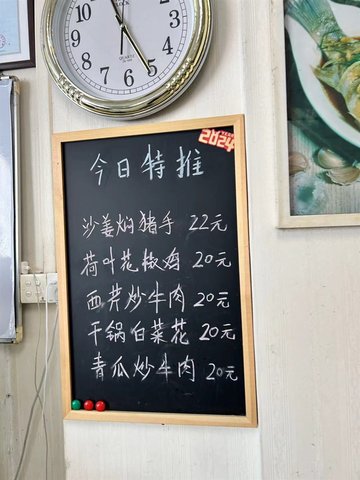 QUARTZ
5
2024
今日特推
沙姜焖猪手 22元
荷叶花椒鸡 20元
西芹炒牛肉 20元
干锅白菜花 20元
青瓜炒牛肉 20元